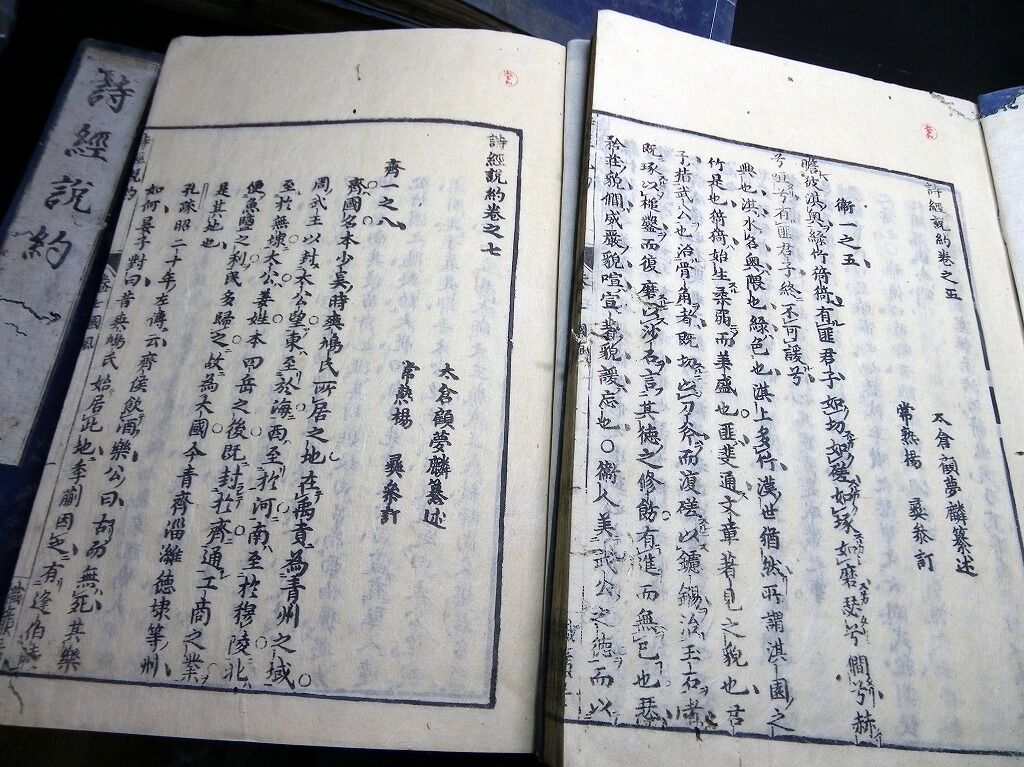 詩經說約
詩經說約卷之五
太倉顧夢麟纂述
常熟楊 彝參訂
衛一之五
瞻彼淇奧綠竹猗猗有匪君子如切如磋如琢如磨瑟兮僩兮赫
兮咺兮有匪君子終不可諼兮
興也淇水名奧隈也綠色也淇上多竹漢世猶然所謂淇園之
竹是也猗猗始生柔弱而美盛也匪斐通文章著見之貌也君
子指武公也治骨角者既切以刀斧而復磋以鑢錫治玉石者
既琢以槌鑿而復磨以沙石言其德之修飭有進而無已也瑟
矜莊貌僩威嚴貌咺宣著貌諼忘也○衛人美武公之德而以
詩經說約卷之七
太倉顧夢麟纂述
常熟楊 彝參訂
齊一之八
齊國名本少昊時爽鳩氏所居之地在禹貢為青州之域
周武王以封太公望東至於海西至於河南至於穆陵北
至於無棣太公姜姓本四岳之後既封於齊通工商之業
便魚鹽之利民多歸之故為大國今青齊淄濰德棣等州
是其地也
孔疏昭二十年左傳云齊侯飲酒樂公曰古而無死其樂
如何晏子對曰昔爽鳩氏始居此地季萴因之有逢伯陵